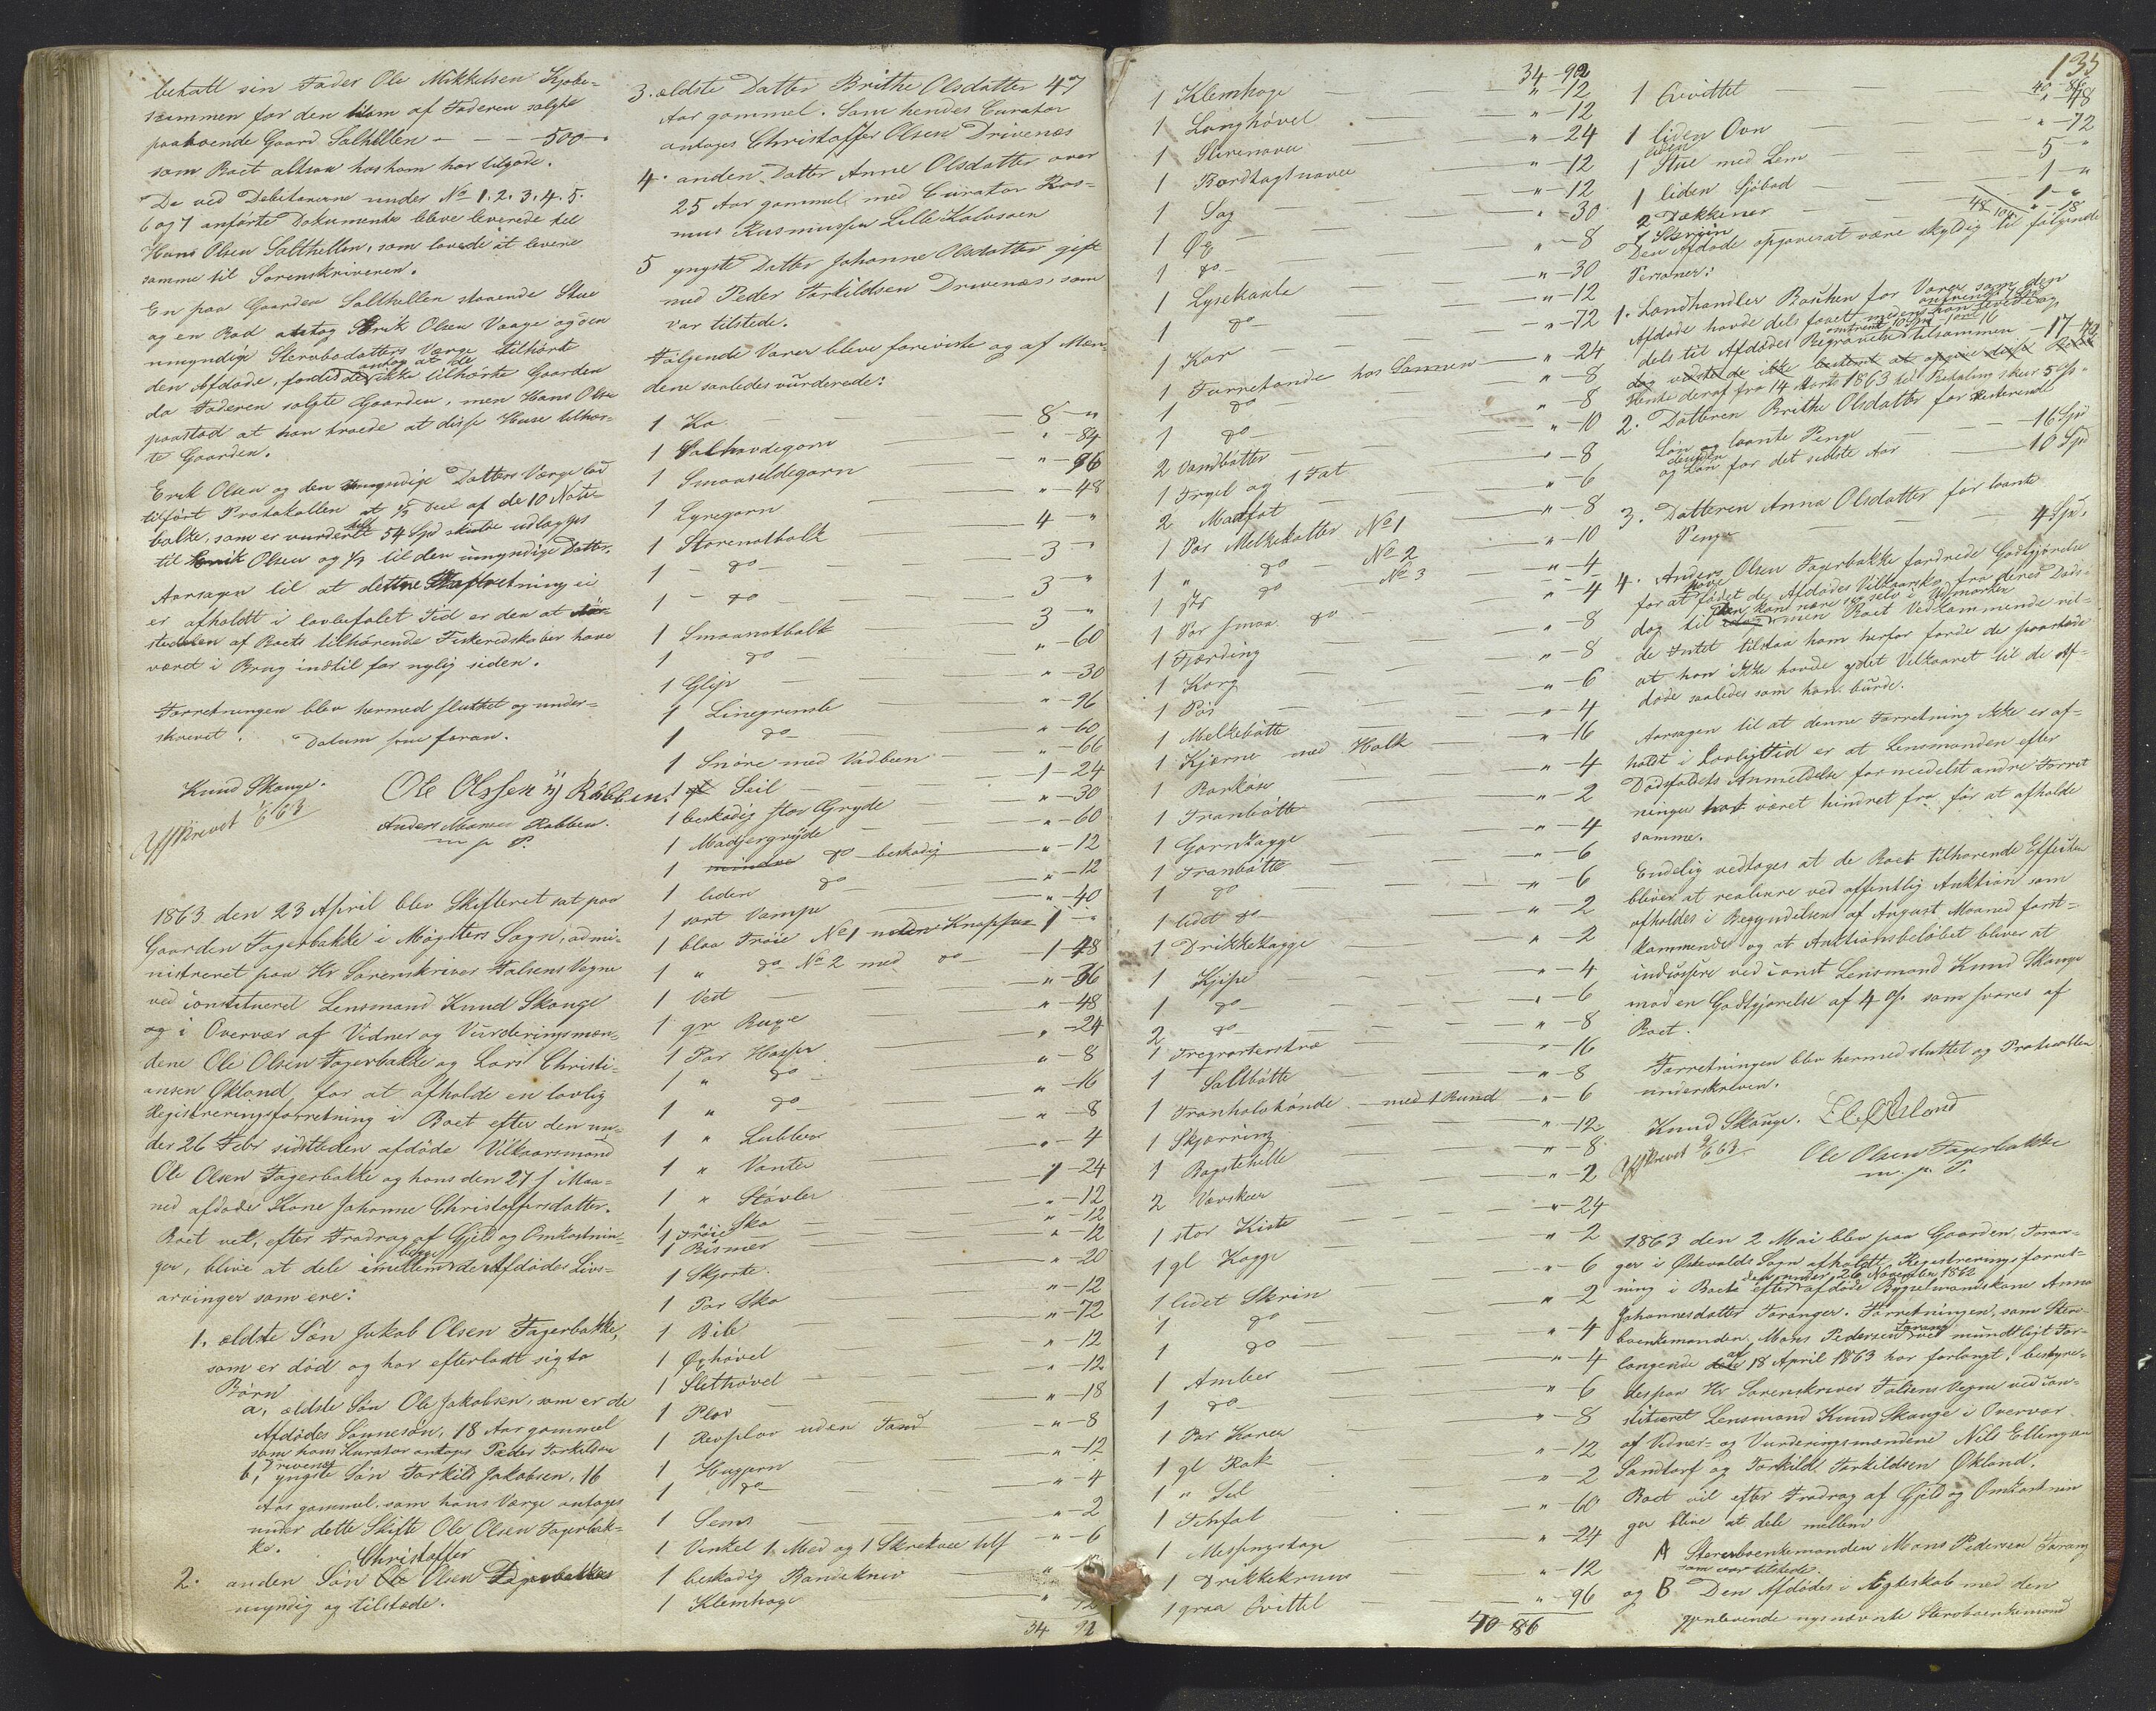 betalt sin Fader Ole Mikkelsen Kjøbe-
summen for den ham af Faderen solgte
paaboende Gaard Salthellen - - - 500 -
som Boet altsaa hos ham har tilgode.
De ved Debitorerne under No 1. 2. 3. 4. 5.
6 og 7 anførte Dokumenter bleve leverede til
Hans Olsen Salthellen, som lovede at levere
samme til Sorenskriveren.
En paa Gaarden Salthellen staaende Stue
og en Bod antog Erik Olsen Vaage og den
umyndige Stervbodatters Værge tilhørte
den Afdøde, fordi de antog at de ikke tilhørte Gaarden
da Faderen solgte Gaarden, men Hans Olsen
paastod at han troede at disse Huse tilhør-
te Gaarden.
Erik Olsen og den umyndige Datters Værge lod
tilført Protokollen at 1/3 Deel af de 10 Note-
bolke, som er vurderet til 54 Spd skulde udlægges
til Erik Olsen og 1/3 til den umyndige Datter.
Aarsagen til at denne Forretning ei
er afholdt i lovbefalet Tid er den at
stedelen af Boets tilhørende Fiskeredskaber have
været i Brug indtil for nylig siden.
Forretningen blev hermed sluttet og under-
skrevet. Datum som foran.
Knud Skauge. Ole Olssen Rabben.
Anders Monsen Rabben.
m p P.
Afskrevet 1/6 63
1863 den 23 April blev Skifteret sat paa
Gaarden Fagerbakke i Møgsters Sogn, admi-
nistreret paa Hr Sorenskriver Falsens Vegne
ved constitueret Lensmand Knud Skauge
og i Overvær af Vidner og Vurderingsmæn-
dene Ole Olsen Fagerbakke og Lars Christi-
ansen Økland, for at afholde en lovlig
Registreringsforretning i Boet efter den un-
der 26 Febr sidstleden afdøde Vilkaarsmand
Ole Olsen Fagerbakke og hans den 27 s. Maa-
ned afdøde Kone Johanne Christoffersdatter.
Boet vil, efter Fradrag af Gjeld og Omkostnin-
ger, blive at dele imellem begge de Afdødes Livs-
arvinger som ere:
1. ældste Søn Jakob Olsen Fagerbakke,
som er død og har efterladt sig to
Børn
a, ældste Søn Ole Jakobsen, som er de
Afdødes Sønnesøn, 18 Aar gammel
som hans Kurator antages Peder Torkildsen
Drivenæs
b, yngste Søn Torkild Jakobsen, 16
Aar gammel, som hans Værge antages
under dette Skifte Ole Olsen Fagerbak-
ke.
2. anden Søn Christoffer Olsen
myndig og tilstede.
3. ældste Datter Brithe Olsdatter 47
Aar gammel. Som hendes Curator
antages Christoffer Olsen Drivenæs
4. anden Datter Anne Olsdatter over
25 Aar gammel, med Curator Ras-
mus Rasmussen Lille Kalvsøen
5 yngste Datter Johanne Olsdatter gift
med Peder Torkildsen Drivenæs, som
var tilstede.
Følgende Varer bleve foreviste og af Mæn-
dene saaledes vurderede:
1 Ko - 8 - "
1 - " - 84
1 Smaasildegarn - " - 96
1 Lyregarn - " - 48
1 Storenotbolk - 4 - "
1 - do - 3 - "
1 - do - 3 - "
1 Smaanotbolk - 3 - "
1 do - " - 60
1 Glip - " - 30
1 Linegrunsle - " - 96
1 do - " - 60
1 Snøre med Vadbeen - " - 66
1 Seil - 1 - 24
1 beskadig stor Gryde - " - 30
1 Madjerngryde - " - 60
1 mindre do beskadig - " - 12
1 liden do - " - 12
1 sort Vampe - " - 40
1 blaa Trøie No 1 uden Knapper - 1 - "
1 " do No 2 med do - 1 - 48
1 Vest - " - 36
1 gr Buxe - " - 48
1 Par Hoser - " - 24
1 " do - " - 8
1 " do - " - 16
1 " Lubber - " - 8
1 " Vanter - " - 4
1 " Støvler - 1 - 24
1 " Sko - " - 12
1 Trøie - " - 12
1 Bismer - " - 12
1 Skjorte - " - 20
1 Par Sko - " - 12
1 Bibel - " - 72
1 Øxhøvel - " - 12
1 Sletthøvel - " - 12
1 Plov - " - 18
1 Revplov uden Tand - " - 8
1 Hugjern - " - 12
1 do - " - 4
1 Sems - " - 2
1 Vinkel 1 Med og 1 - " - 6
1 beskadig Bandekniv
1 Klemhage - " - 12
34 92
34 - 92
1 Klemhage - " - 12
1 Langhøvel - " - 12
1 - " - 24
1 Bordtagsnaver - " - 12
1 Sag - " - 12
1 Øx - " - 30
1 do - " - 8
1 Lysekaale - " - 30
1 do - " - 12
1 Kar - " - 72
1 Tørretønde hos Sønnen - " - 24
1 do - " - 8
1 do - " - 8
2 Vandbøtter - " - 10
1 Trygel og 1 Fat - " - 8
2 Madfat - " - 6
1 Par Melkekoller No 1 - " - 8
1 " do No 2 - " - 10
1 Par do No 3 - " - 4
1 Par smaa do - " - 4
1 Fjærding - " - 8
1 Korg - " - 8
1 Pøs - " - 6
1 Melkebøtte - " - 4
1 Kjærne med Holk - " - 16
1 - " - 4
1 Tranbøtte - " - 2
1 - " - 4
1 Tranbøtte - " - 6
1 do - " - 6
1 lidet do - " - 2
1 Drikkekagge - " - 2
1 Kjipe - " - 4
1 do - " - 6
2 do - " - 8
1 - " - 16
1 Saltbøtte - " - 8
1 Tranholstønde med 1 Bund - " - 6
1 Skjærring - " - 12
1 Bagstehelle - " - 8
2 - " - 2
1 stor Kiste - " - 24
1 gl Kagge - " - 2
1 lidet Skrin - " - 6
1 do - " - 2
1 do - " - 4
1 Amber - " - 4
1 do - " - 6
1 Par Karer - " - 8
1 gl Rok - " - 12
1 " Sil - " - 2
1 Tinfat - " - 60
1 Messingstage - " - 24
1 Drikkekruus - " - 12
1 graa Qvittel - " - 96
40 - 86
135
40 - 86
1 Qvittel - " - 48
1 liden Ovn - " - 72
1 liden Stue med Lem - 5 - "
1 liden Sjøbod - 1 - "
2 Dækkener - 1 - "
1 - " - 18
Den Afdøde opgaves at være skyldig til følgende
Personer:
1. Landhandler Bauken for Varer som den
Afdøde havde dels faaet medens han levede og
dels til Afdødes Begravelse tilsammen - 17
Rente deraf fra 14 Marts 1863 til Betaling skeer 5 %
2. Datteren Brithe Olsdatter for resterende
Løn og laante Penge - 16 Spd
og Løn for det sidste Aar - 10 Spd
3. Datteren Anna Olsdatter for laante
Penge - 4 Spd.
4. Anders Olsen Fagerbakke fordrede Godtgjørelse
for at have født de Afdødes Vilkaarsko fra deres Døds-
dag til den kan nære sig selv i Udmarken
men Boet Vedkommende vil-
de Intet tilstaa ham herfor fordi de paastode
at han ikke havde ydet Vilkaaret til de Af-
døde saaledes som han burde.
Aarsagen til at denne Forretning ikke er af-
holdt i lovlig Tid er at Lensmanden efter
Dødsfaldets Anmeldelse formedelst andre Forret
ninger har været hindret fra før at afholde
samme.
Endelig vedtoges at de Boet tilhørende Effecter
bliver at realisere ved offentlig Auktion som
afholdes i Begyndelsen af August Maaned først-
kommende og at Auktionsbeløbet bliver at
indkassere ved const Lensmand Knud Skauge
mod en Godtgjørelse af 4 % som svares af
Boet.
Forretningen blev hermed sluttet og Protocollen
underskreven.
Knud Skauge. L C Økland
Ole Olsen Fagerbakke
m. p. P.
Afskrevet 2/6 63
1863 den 2 Mai blev paa Gaarden Foran-
ger i Østevolds Sogn afholdt Registreringsforret-
ning i Boet efter den under 26 November 1862 afdøde Bygselmandskone Anna
Johannesdatter Foranger. Forretningen, som Sterv-
boenkemanden Mons Pedersen Forang ved mundtligt For-
langende af 18 April 1863 har forlangt, bestyre-
des paa Hr Sorenskriver Falsens Vegne ved con-
stitueret Lensmand Knud Skauge i Overvær
af Vidner- og Vurderingsmændene Nils Ellingsen
Sandtorf og Torkild Torkildsen Økland.
Boet vil efter Fradrag af Gjeld og Omkostnin
ger blive at dele mellem
A Stervboenkemanden Mons Pedersen Forang
som var tilstede.
og B. Den Afdødes i Ægteskab med den
gjenlevende nysnævnte Stervboenkemand